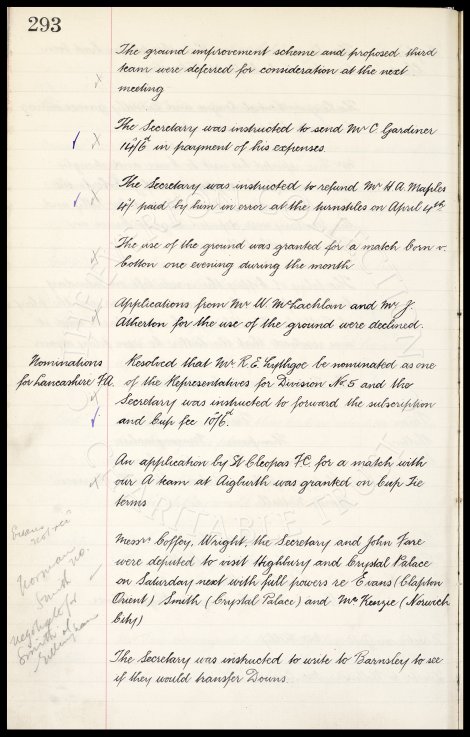 293
The ground improvement scheme and proposed third
team were deferred for consideration at the next
meeting
The Secretary was instructed to send Mr C Gardiner
14/6d in payment of his expenses.
The Secretary was instructed to refund Mr H A Maples
4/- paid by him in error at the turnstiles on April 4th.
The use of the ground was granted for a match Corn v.
Cotton one evening during the month
Applications from Mr W. McLachlan and Mr J.
Atherton for the use of the ground were declined.
Nominations
for Lancashire F.A.
Resolved that Mr R E Lythgoe be nominated as one
of the Representatives for Division No. 5 and the
Secretary was instructed to forward the subscription
and Cup fee 10/6d.
An application by St Cleopas F.C. for a match with
our A team at Aigburth was granted on Cup Tie
terms
Messrs Coffey, Wright, the Secretary and John Fare
were deputed to visit Highbury and Crystal Palace
on Saturday next with full powers re Evans (Clapton
Orient) Smith (Crystal Palace) and McKenzie (Norwich
City)
Norman
Smith no.
negotiate for
Smith of
Gillingham
The Secretary was instructed to write to Barnsley to see
if they would transfer Downs